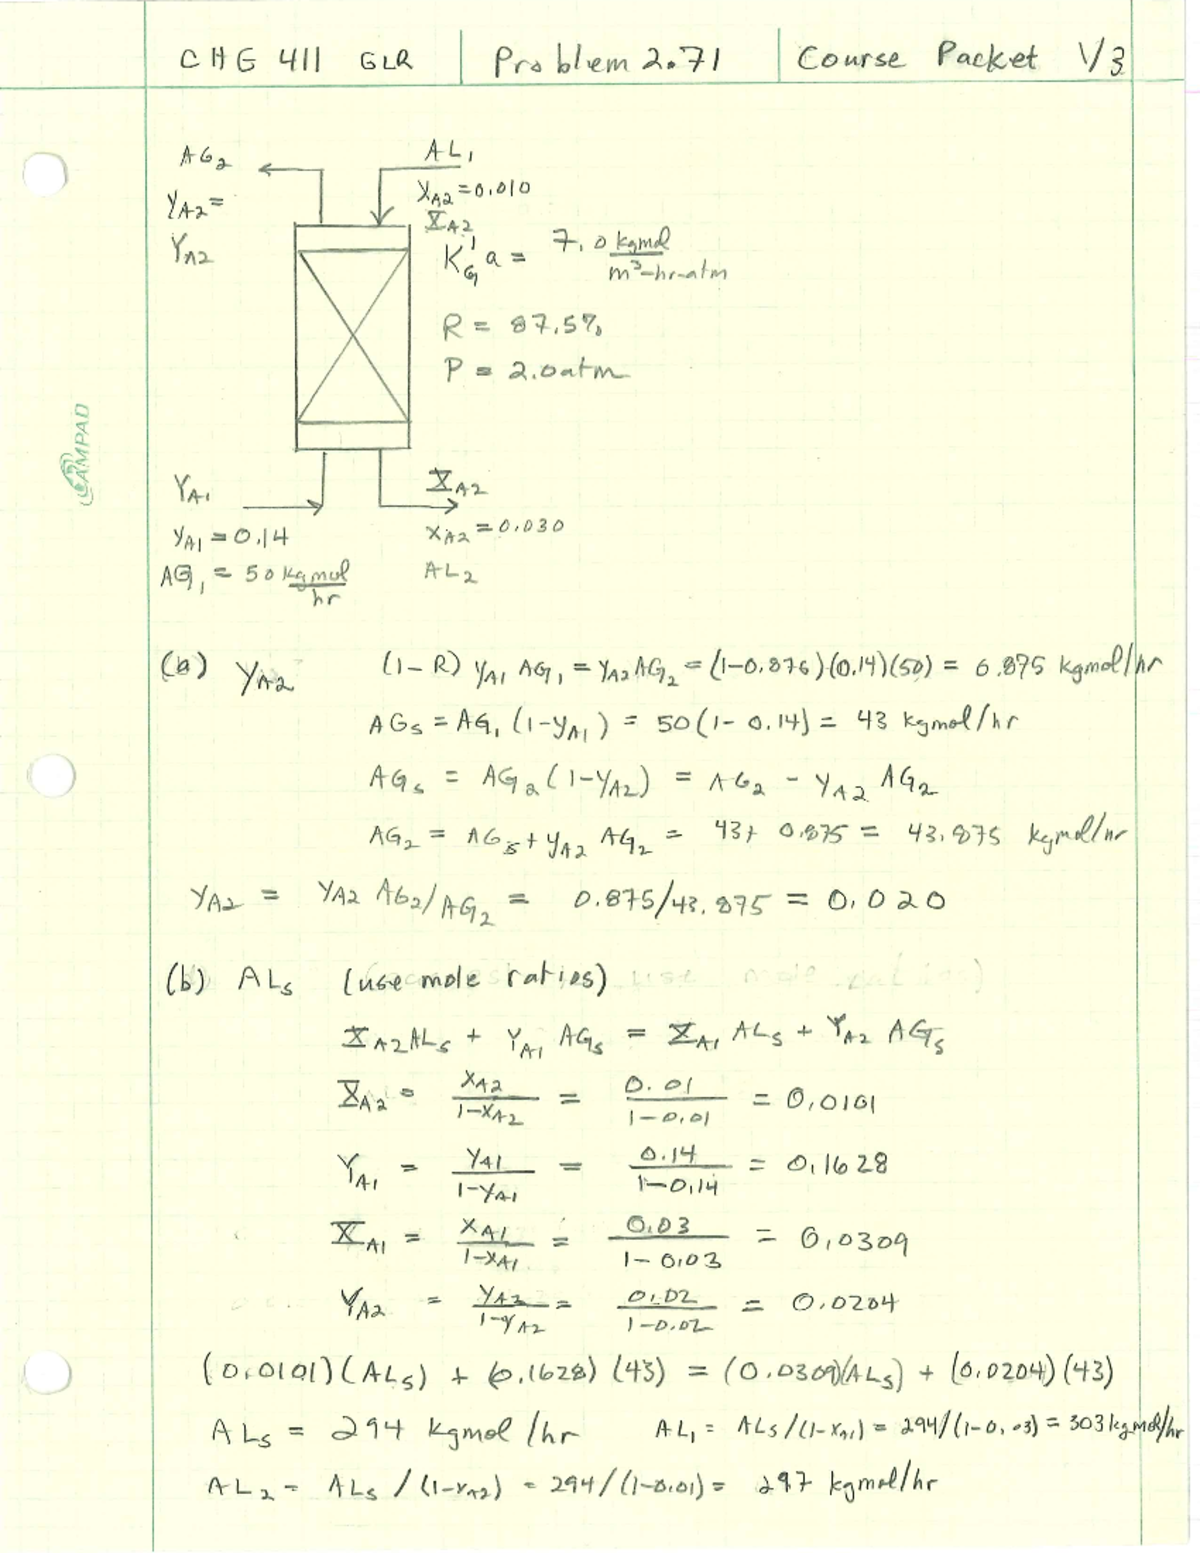 CHE 411 GLR Problem 2.71 Course Packet 1/3
AG₂ AL₁
y_A2 = x_A2 = 0.010
Y_A2 X_A2
K'_G a = 7.0 kgmol / m³-hr-atm
R = 87.5%
P = 2.0 atm
AMPAD
Y_A1 X_A2
y_A1 = 0.14 x_A2 = 0.030
AG₁ = 50 kgmol/hr AL₂
(a) y_A2 (1-R) y_A1 AG₁ = y_A2 AG₂ = (1-0.875)(0.14)(50) = 0.875 kgmol/hr
AG_s = AG₁ (1-y_A1) = 50(1-0.14) = 43 kgmol/hr
AG_s = AG₂(1-y_A2) = AG₂ - y_A2 AG₂
AG₂ = AG_s + y_A2 AG₂ = 43 + 0.875 = 43.875 kgmol/hr
y_A2 = y_A2 AG₂/AG₂ = 0.875/43.875 = 0.020
(b) AL_s (use mole ratios)
X_A2 AL_s + Y_A1 AG_s = X_A1 AL_s + Y_A2 AG_s
X_A2 = x_A2 / 1-x_A2 = 0.01 / 1-0.01 = 0.0101
Y_A1 = y_A1 / 1-y_A1 = 0.14 / 1-0.14 = 0.1628
X_A1 = x_A1 / 1-x_A1 = 0.03 / 1-0.03 = 0.0309
Y_A2 = y_A2 / 1-y_A2 = 0.02 / 1-0.02 = 0.0204
(0.0101)(AL_s) + (0.1628)(43) = (0.0309)(AL_s) + (0.0204)(43)
AL_s = 294 kgmol/hr AL₁ = AL_s/(1-x_A1) = 294/(1-0.03) = 303 kgmol/hr
AL₂ = AL_s/(1-x_A2) = 294/(1-0.01) = 297 kgmol/hr